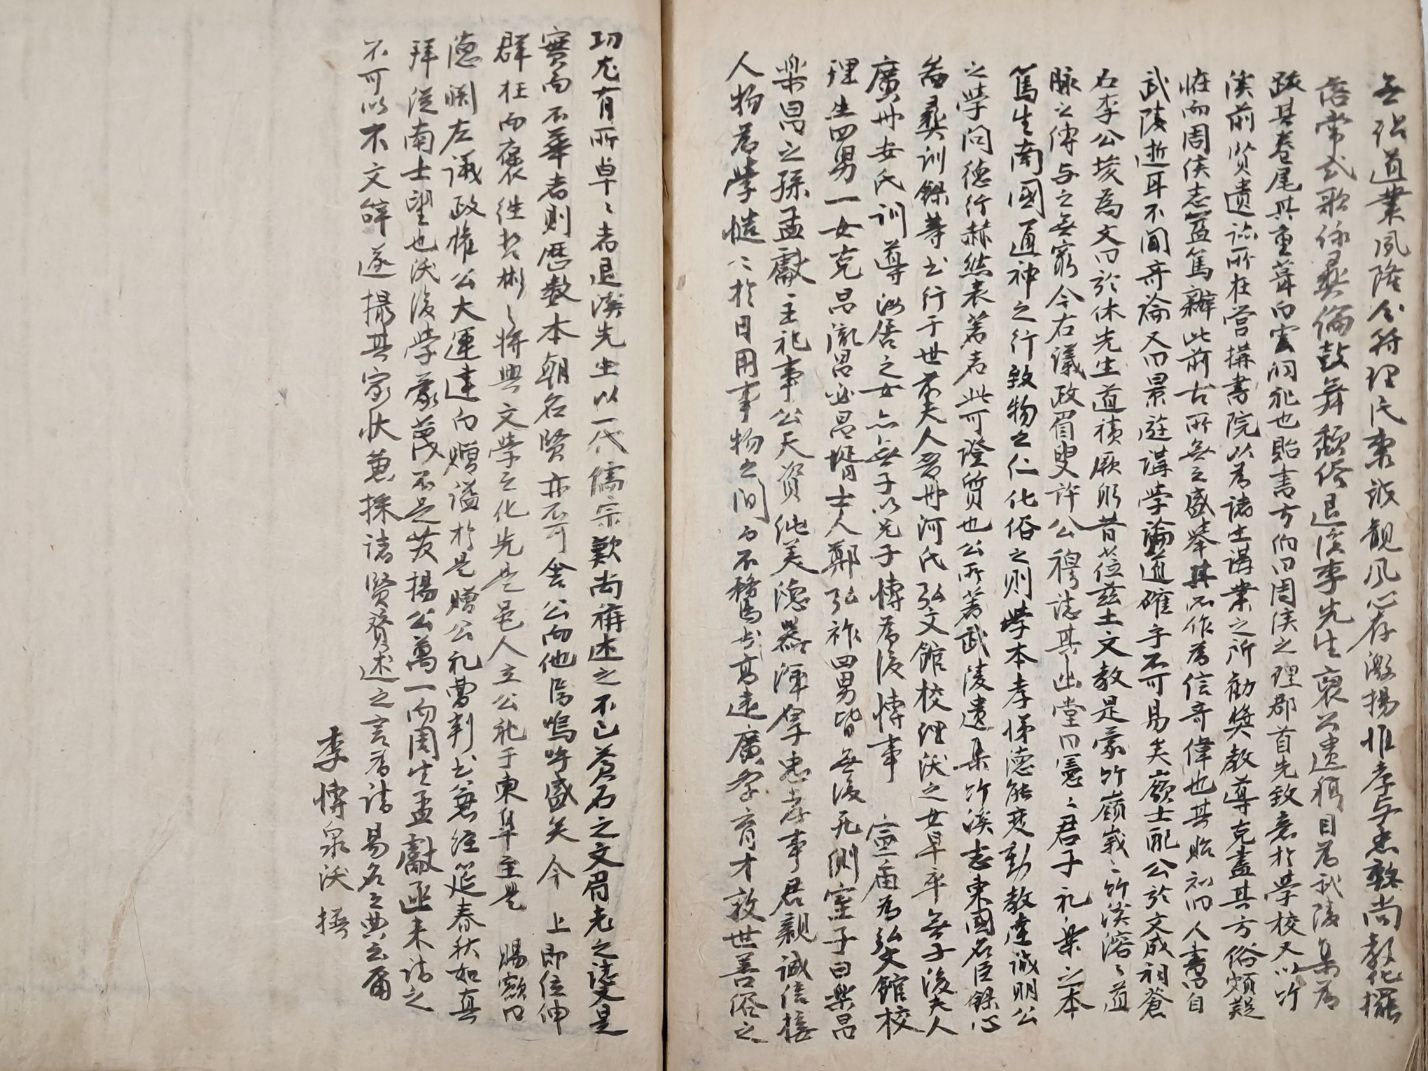 道業風隆命符理民東設觀風心存激揚惟孝与忠敦尚敎化擢
密常或歌 彛倫鼓舞頹俗退溪李先生裒公遺稿目爲武陵集爲
跋其卷尾其重葺白雲洞祀也貽書方伯曰周侯之理郡首先致意於學校又以竹
溪前賢遺跡所在營搆書院以爲諸士講業之所勸奬教導克盡其方俗頗疑
恠而周侯志益篤辦此前古所無之盛擧其所作爲信奇偉也其貽知旧人書曰自
武陵逝耳不聞奇論又曰景遊講學論道確乎不可易矣廟士配公於文成祠蒼
石李公埈爲文曰於休先生道積厥躬昔莅玆土文敎是蒙竹嶺峩〻竹溪溶〻道
脉之傳与之無窮今右議政眉叟許公穆誌其幽堂曰憲〻君子礼樂之本
篤生南國通神之行致物之仁化俗之則學本孝悌德能 動敎達誠明公
之學問德行赫然表著者此可證質也公所著武陵遺集竹溪志東國名臣錄心
啚彛訓錄等书行于世前夫人晉州河氏弘文館校理沃之女早卒無子後夫人
廣州安氏訓導汝居之女亦無子以兄子博爲後博事 宣庙爲弘文館校
理生四男一女克昌胤昌必昌壻士人鄭弘祚四男皆無後先側室子曰樂昌
樂昌之孫孟獻主祀事公天資純美德器渾厚忠孝事君親誠信接
人物爲學慥〻於日用事物之間而不騖於高遠廣厚育才救世善俗之
功尤有所卓〻者退溪先生以一代儒宗歎尚稱述之不已蒼石之文眉老之 是
實而不華者則歷數本朝名賢亦不可舍公而他 嗚呼盛矣今 上卽位伸
群枉而褒徃 彬〻将興文學之化先是邑人立公祀于東阜至是 賜額曰
德淵左議政權公大運建白贈謚於是贈公礼曹判书兼經筵春秋如其
拜從南士望也沃後學蒙蔑不足发揚公萬一而周生孟獻亟来請之
不可以不文辞遂撮其家狀兼採諸賢贊述之言爲請易名之典云爾
李博泉沃撰